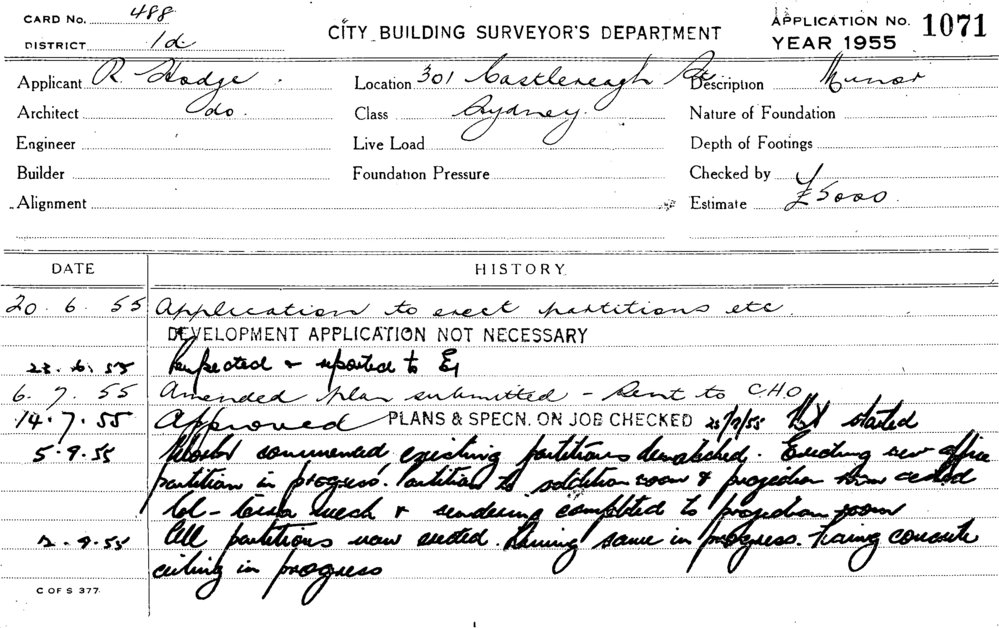 CARD No. 488
DISTRICT 1d
CITY BUILDING SURVEYOR'S DEPARTMENT
APPLICATION No. 1071
YEAR 1955
Applicant R. Hodge. Location 301 Castlereagh St Description Minor
Architect do. Class Sydney. Nature of Foundation
Engineer Live Load Depth of Footings
Builder Foundation Pressure Checked by
Alignment Estimate £5000.
DATE HISTORY
20. 6. 55 Application to erect partitions etc.
DEVELOPMENT APPLICATION NOT NECESSARY
23. 6. 55 Inspected & reported to
6. 7. 55 Amended plan submitted - Sent to C.H.O
14. 7. 55 Approved PLANS & SPECN. ON JOB CHECKED 25/7/55 started
5. 9. 55 commenced existing partitions demolished. Erecting new office
partition in progress. Partition to room & projection room
mesh & rendering completed to projection room
9. 55 All partitions now erected. same in progress. concrete
ceiling in progress
C OF S 377.